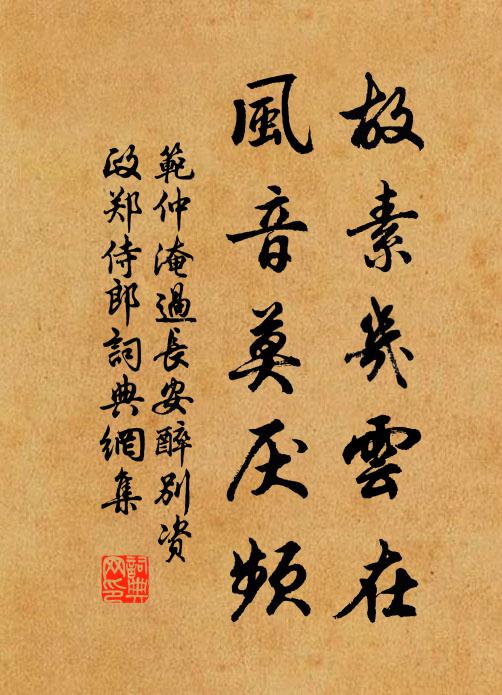 故素幾雲在
風音莫厌頻
範仲淹過長安醉別资
政郑侍郎詞典網集
詞典
网印